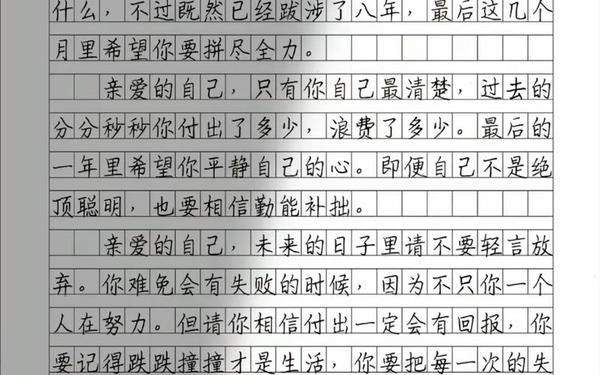 什么，不过既然已经跋涉了八年，最后这几个
月里希望你要拼尽全力。
亲爱的自己，只有你自己最清楚，过去的
分分秒秒你付出了多少，浪费了多少。最后的
一年里希望你平静自己的心。即便自己不是绝
顶聪明，也要相信勤能补拙。
亲爱的自己，未来的日子里请不要轻言放
弃。你难免会有失败的时候，因为不只你一个
人在努力。但请你相信付出一定会有回报，你
要记得跌跌撞撞才是生活，你要把每一次的失